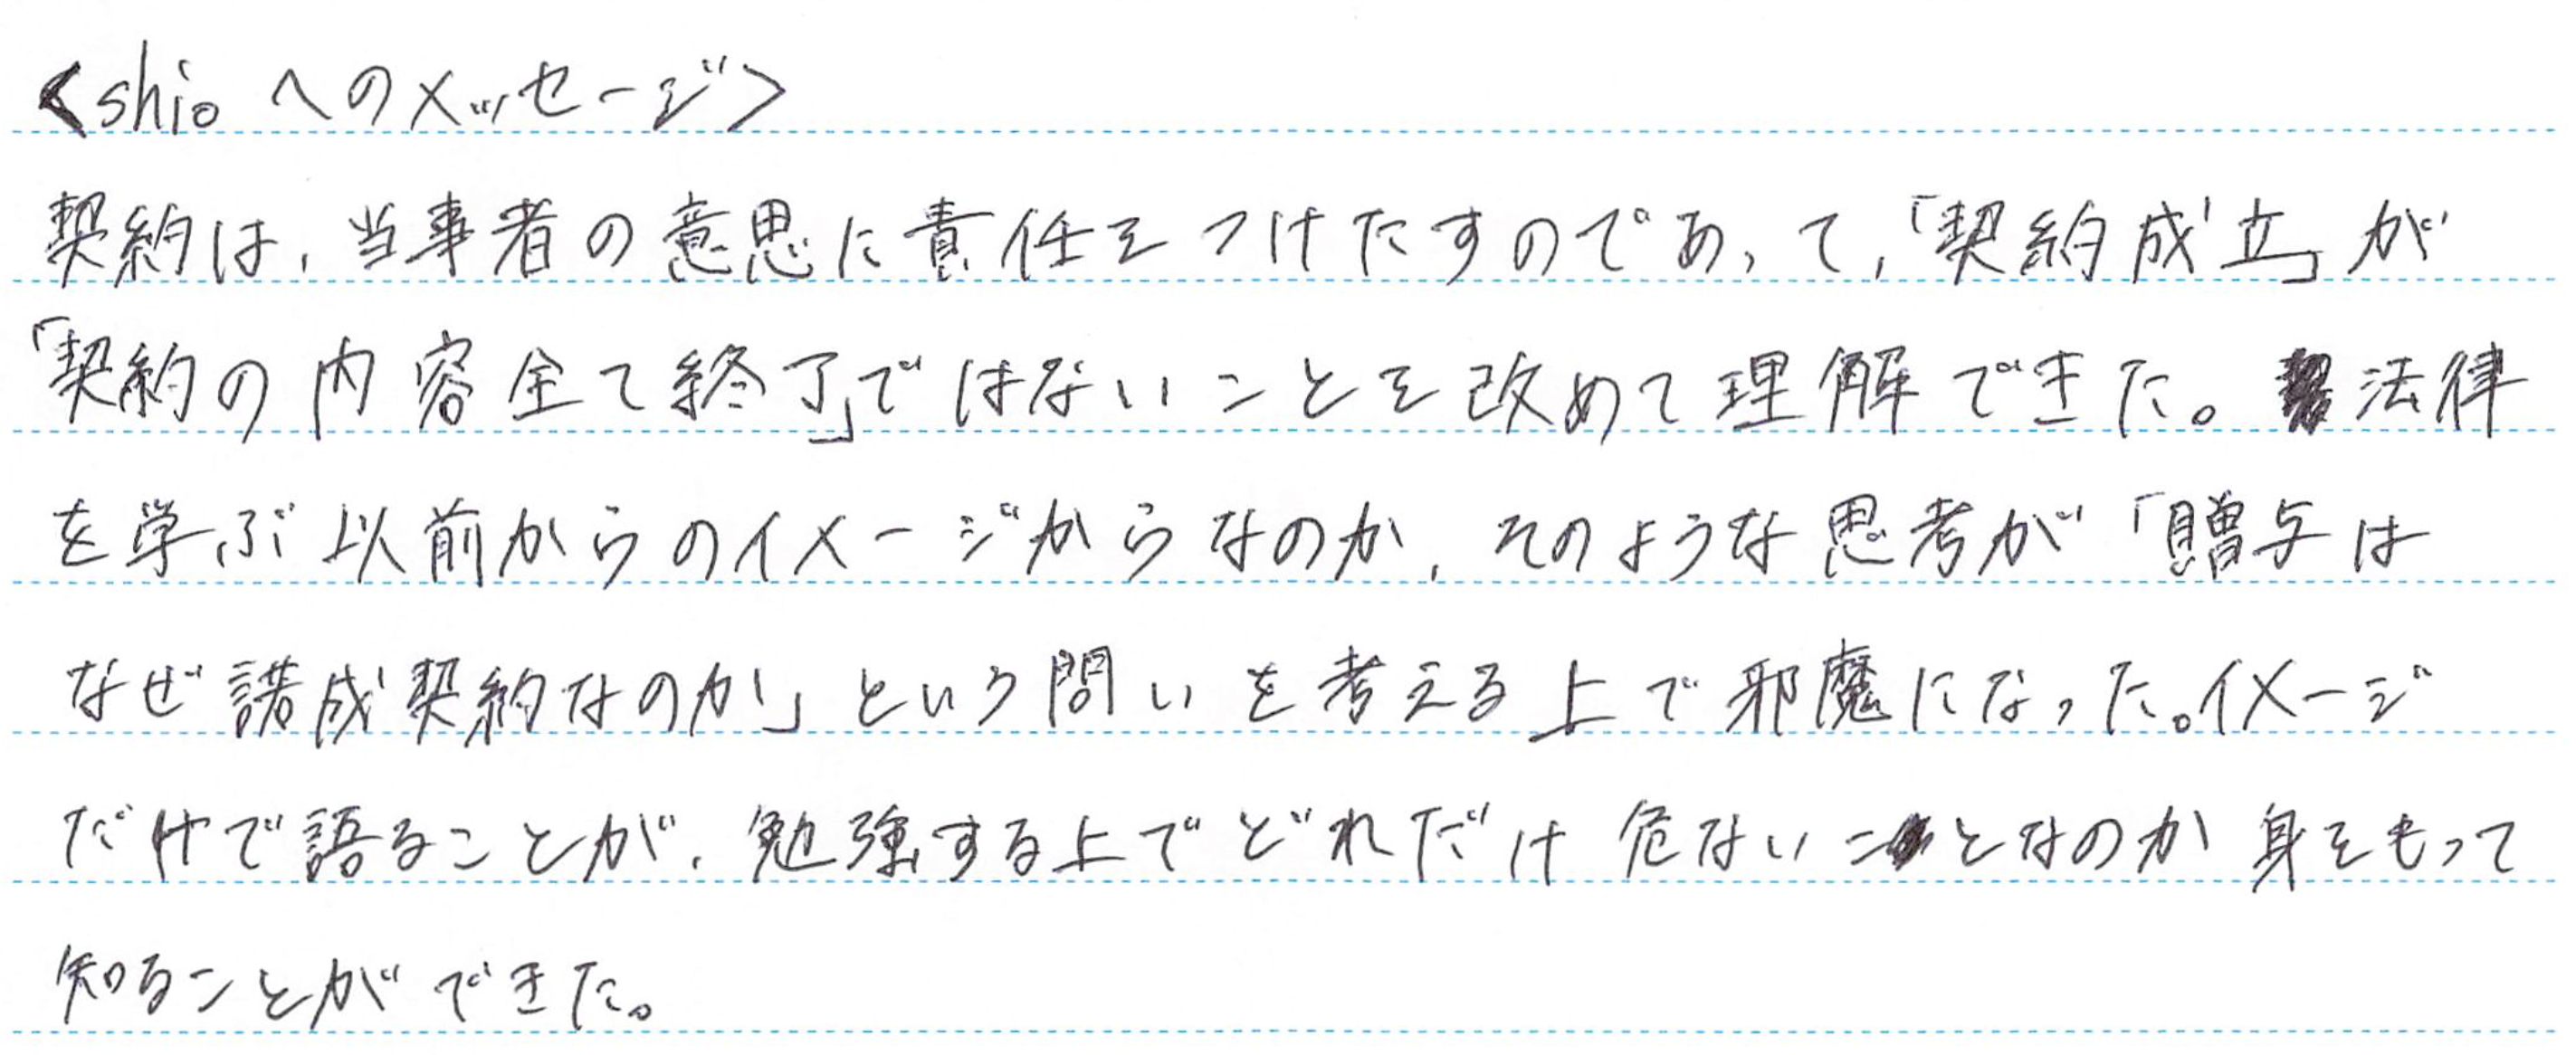 <shioへのメッセージ>
契約は、当事者の意思に責任をつけたすのであって、「契約成立」が
「契約の内容全て終了」ではないことを改めて理解できた。法律
を学ぶ以前からのイメージからなのか、そのような思考が「贈与は
なぜ諾成契約なのか」という問いを考える上で邪魔になった。イメージ
だけで語ることが、勉強する上でどれだけ危ないことなのか身をもって
知ることができた。